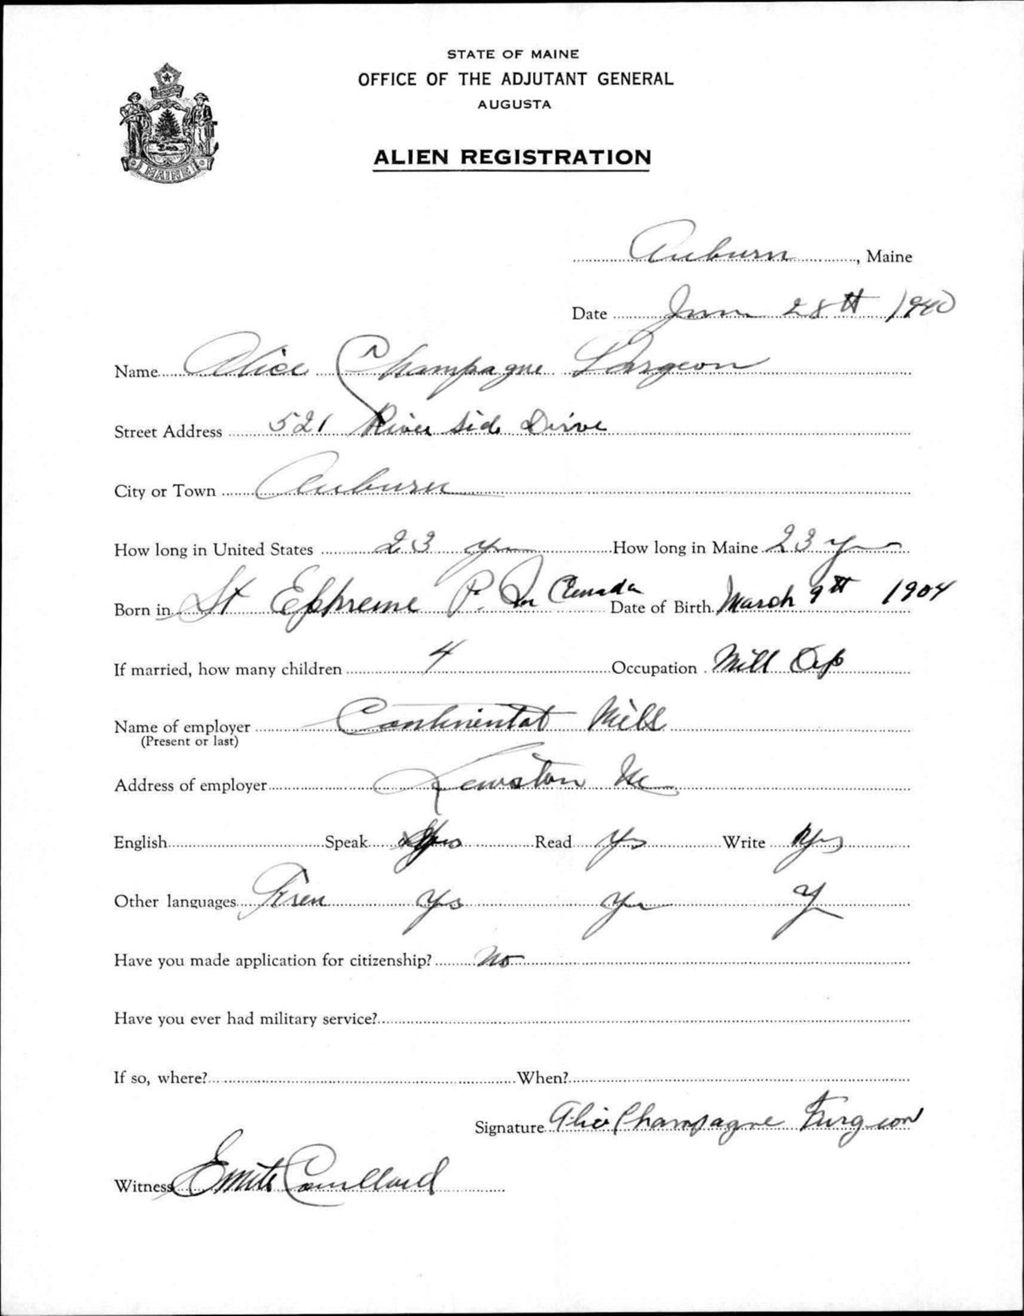 STATE OF MAINE
OFFICE OF THE ADJUTANT GENERAL
AUGUSTA
MAINE
ALIEN REGISTRATION
Auburn, Maine
Date June 28th 1940
Name Alice Champagne Turgeon
Street Address 521 River Side Drive
City or Town Auburn
How long in United States 23 yr How long in Maine 23 yr
Born in St Ephreme P. Qu Canada Date of Birth March 9th 1904
If married, how many children 4 Occupation Mill Op
Name of employer Continental Mills
(Present or last)
Address of employer Lewiston Me
English Speak Yes Read Yes Write Yes
Other languages Fren Yes Yes Y
Have you made application for citizenship? No
Have you ever had military service?
If so, where? When?
Signature Alice Champagne Turgeon
Witness Emile Couillard